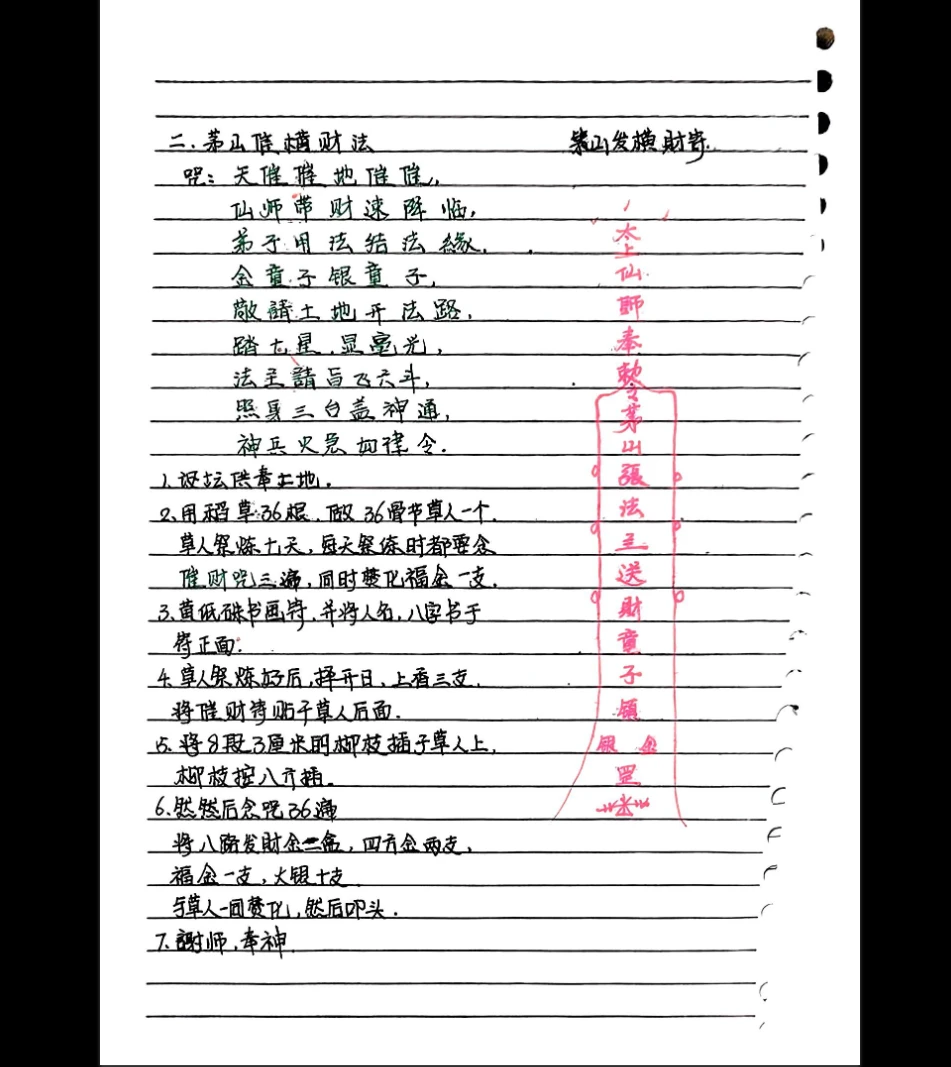 二.茅山催横财法
咒:天催催地催催,
仙师带财速降临,
弟子用法结法緣.
金童子银童子,
敬請土地开法路,
踏七星.显毫光,
法主請旨飞六斗,
照身三台盖神通,
神兵火急如律令.
1.设坛供奉土地.
2.用稻草36根.做36骨节草人一个.
草人祭炼七天,每天祭练时都要念
催财咒三遍,同时焚化福金一支.
3.黄纸硃书画符.并将人名,八字书于
符正面.
4.草人祭炼好后,择开日.上香三支.
将催财符贴于草人后面.
5.将8段3厘米的柳枝插于草人上,
柳枝按八方插.
6.然后念咒36遍
将八路发财金三
四方金两支,
福金一支,大银十支
与草人一同焚化,然后叩头.
7.謝师.奉神.
茅山发横財符.
太
上
仙
師
奉
敕
令
茅
山
張
法
主
送
財
童
子
領
银 金
罡